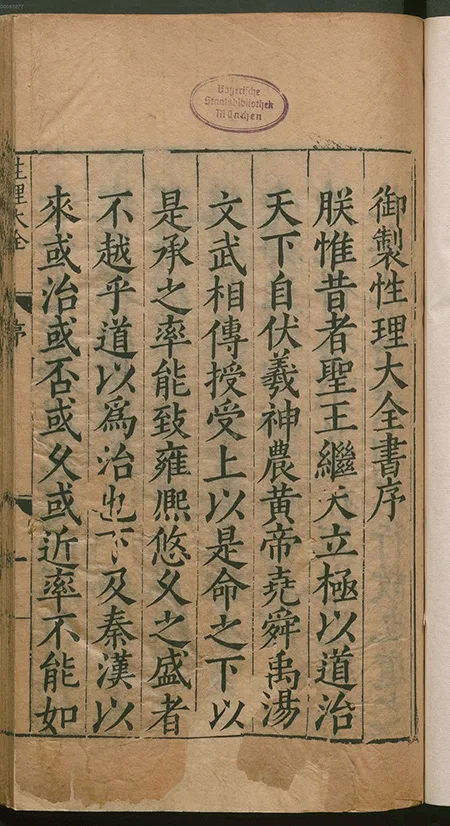 御製性理大全書序
朕惟昔者聖王繼天立極以道治
天下自伏羲神農黃帝堯舜禹湯
文武相傳授受上以是命之下以
是承之率能致雍熙悠久之盛者
不越乎道以爲治也下及秦漢以
來或治或否或久或近率不能如
性理大全
序
一
Bayerische
Staatsbibliothek
München